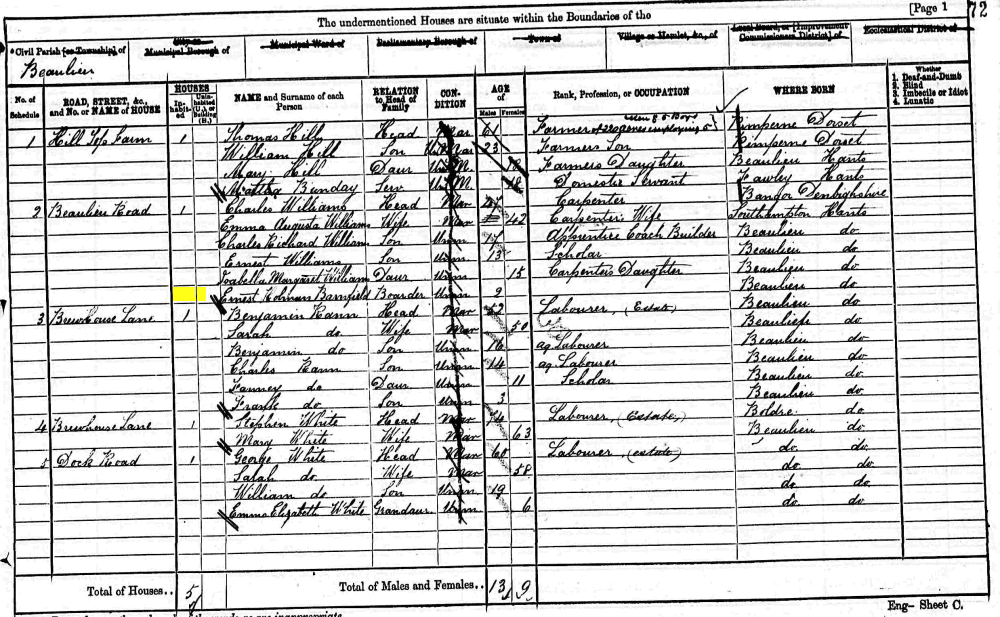 The undermentioned Houses are situate within the Boundaries of the [Page 1 72
*Civil Parish [or Township] of City or Municipal Borough of Municipal Ward of Parliamentary Borough of Town of Village or Hamlet, &c., of Local Board, or [Improvement Commissioners District] of Ecclesiastical District of
Beaulieu
No. of Schedule ROAD, STREET, &c., and No. or NAME of HOUSE HOUSES Inhabited Uninhabited (U.), or Building (B.) NAME and Surname of each Person RELATION to Head of Family CONDITION AGE of Males Females Rank, Profession, or OCCUPATION WHERE BORN Whether 1. Deaf-and-Dumb 2. Blind 3. Imbecile or Idiot 4. Lunatic
1 Hill Top Farm 1 Thomas Hill Head Mar 61 Farmer of 220 acres employing 5 men & 5 Boys Pimperne Dorset
William Hill Son Un Mar 23 Farmers Son Pimperne Dorset
Mary Hill Daur Un M. Farmers Daughter Beaulieu Hants
Bunday Serv Un M. 18 Domestic Servant Fawley Hants
2 Beaulieu Road 1 Charles Williams Head Mar 47 Carpenter Bangor Denbighshire
Emma Augusta Williams Wife Mar 42 Carpenter's Wife Southampton Hants
Charles Richard Williams Son Unm 17 Apprentice Coach Builder Beaulieu do.
Ernest Williams Son Unm 13 Scholar Beaulieu do
Isabella Margaret Williams Daur Unm 15 Carpenter's Daughter Beaulieu do.
Ernest Holman Bamfield Boarder Unm 9 Beaulieu do.
3 Brewhouse Lane 1 Benjamin Kann Head Mar 52 Labourer, (Estate) Beaulieu do.
Sarah do. Wife Mar 50 Beaulieu do.
Benjamin do Son Unm 16 ag. Labourer Beaulieu do.
Charles Kann Son Unm 14 ag. Labourer Beaulieu do.
Fanney do Daur Unm 11 Scholar Beaulieu do.
Frank do. Son Unm 3 Beaulieu do.
4 Brewhouse Lane 1 Stephen White Head Mar 74 Labourer, (Estate) Boldre. do
Mary White Wife Mar 63 Beaulieu do.
5 Dock Road 1 George White Head Mar 60 Labourer (estate) do. do.
Sarah do. Wife Mar 58 do. do.
William do Son Unm 19 do. do.
Emma Elizabeth White Grandaur Unm 6 do. do.
Total of Houses.. 5 Total of Males and Females.. 13 9
Eng- Sheet C.